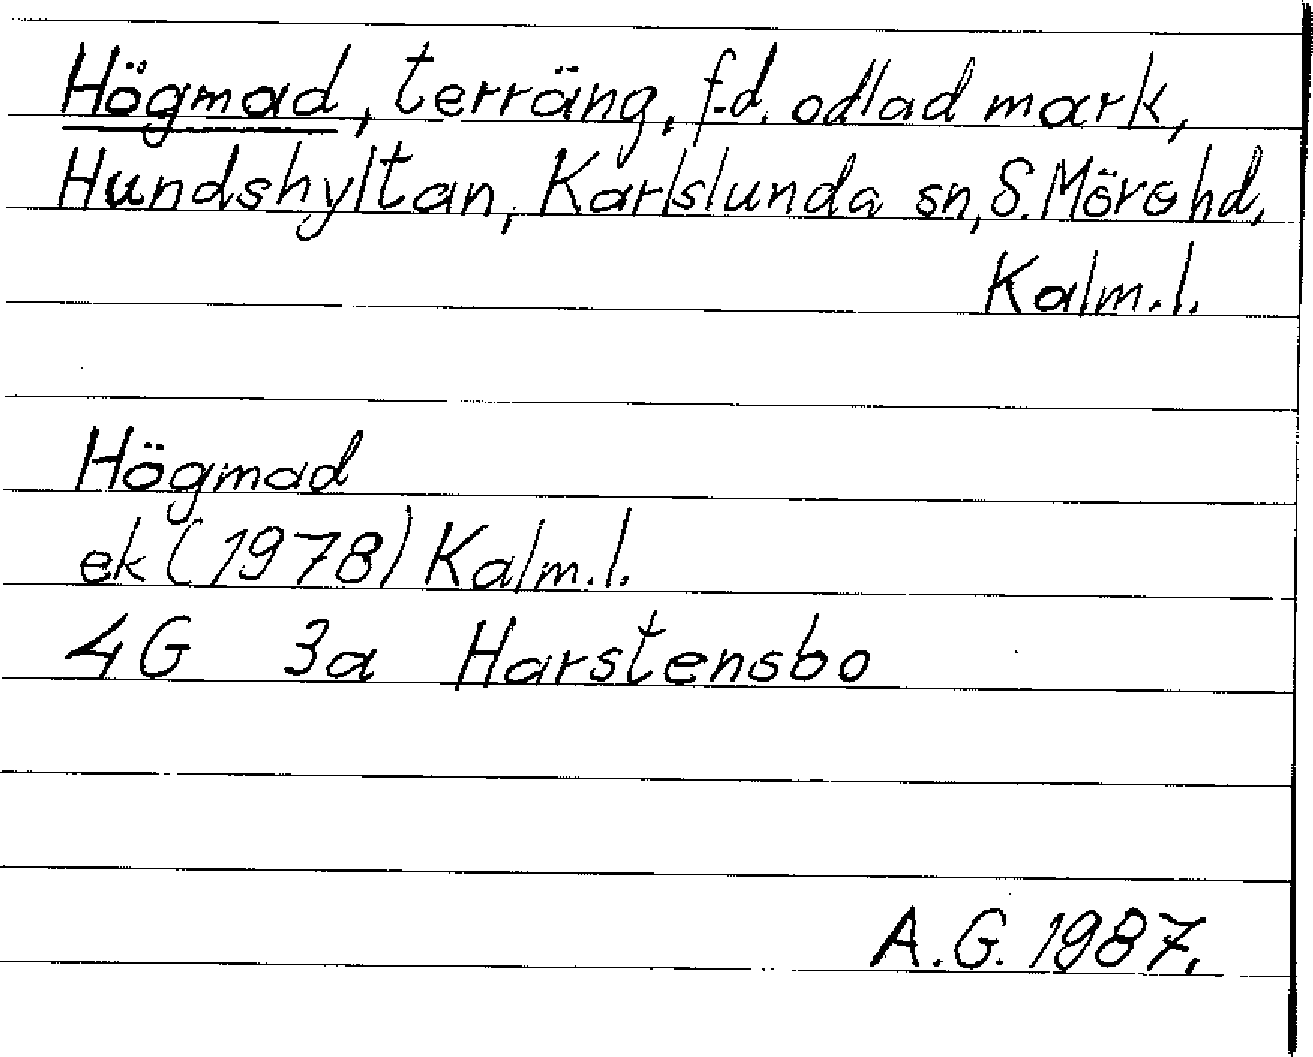 Högmad, terräng, f.d. odlad mark,
Hundshyltan, Karlslunda sn, S. Möre hd,
Kalm. l.
Högmad
ek (1978) Kalm. l.
4G 3a Harstensbo
A.G. 1987.